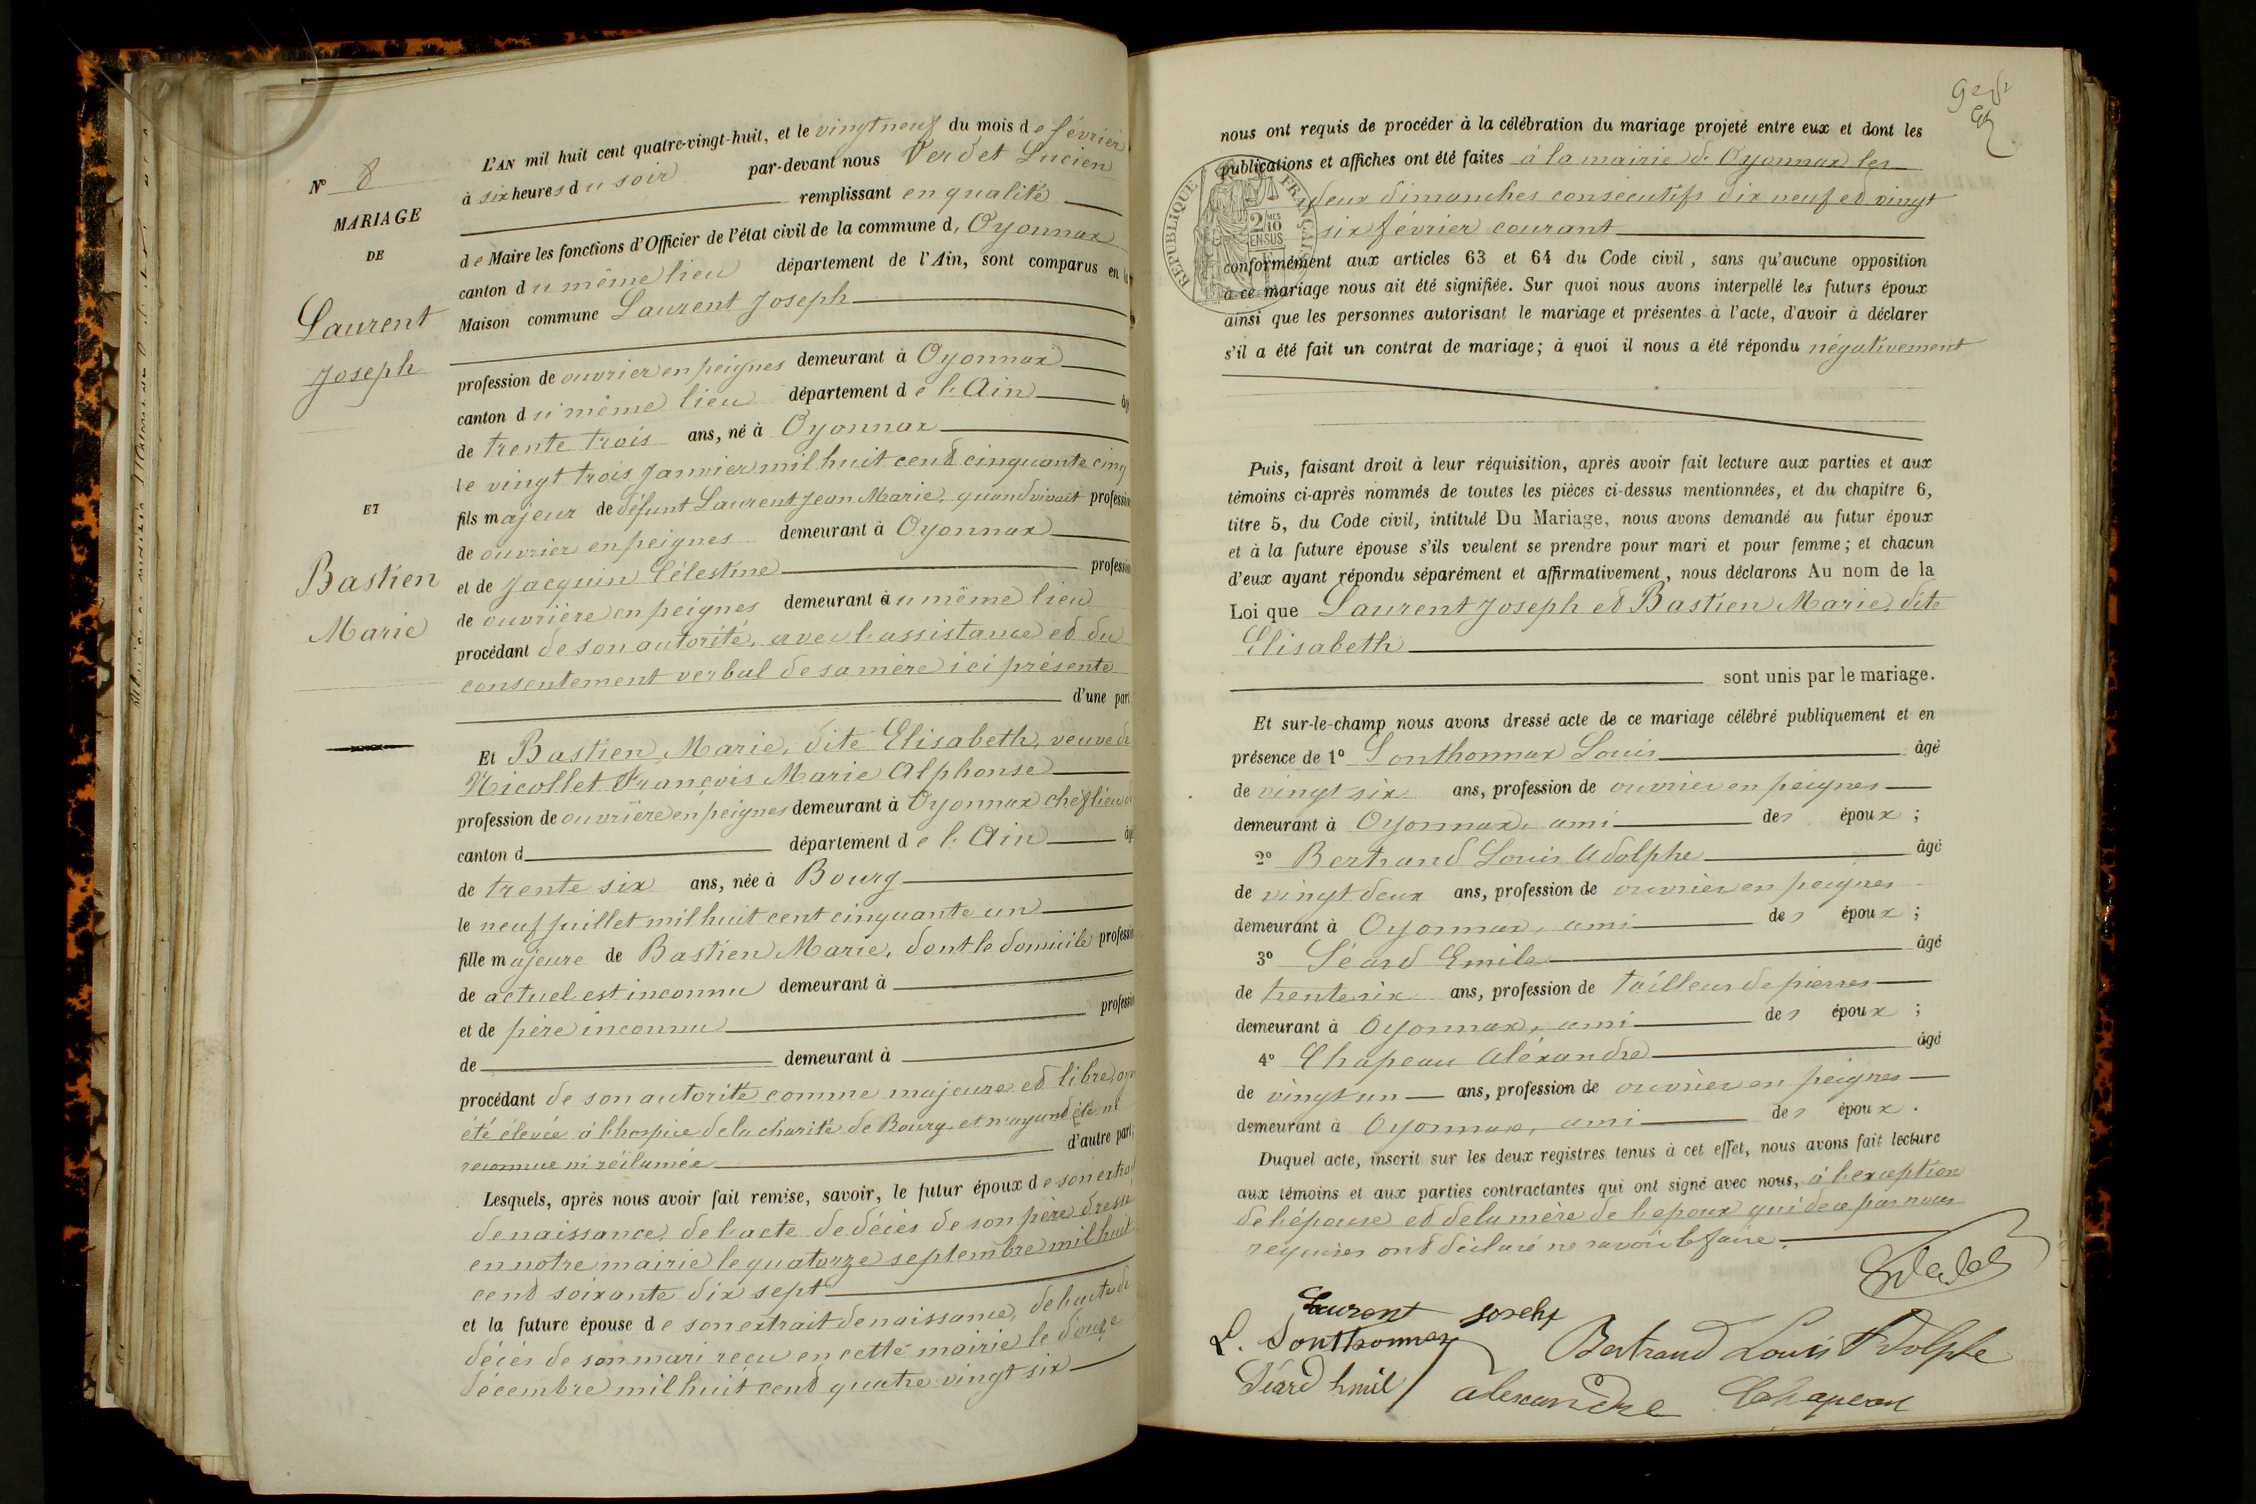 N° 8
MARIAGE
DE
Laurent
Joseph
ET
Bastien
Marie
L'AN mil huit cent quatre-vingt-huit, et le vingt neuf du mois de février
à six heures du soir par-devant nous Verdet Lucien
remplissant en qualité
de Maire les fonctions d'Officier de l'état civil de la commune d, Oyonnax
canton du même lieu département de l'Ain, sont comparus en la
Maison commune Laurent Joseph
profession de ouvrier en peignes demeurant à Oyonnax
canton du même lieu département de l'Ain âgé
de trente trois ans, né à Oyonnax
le vingt trois Janvier mil huit cent cinquante cinq
fils majeur de défunt Laurent Jean Marie, quand vivait profession
de ouvrier en peignes demeurant à Oyonnax
et de Jacquin Célestine profession
de ouvrière en peignes demeurant au même lieu
procédant de son autorité, avec l'assistance et du
consentement verbal de sa mère ici présente
d'une part
Et Bastien Marie, dite Elisabeth, veuve de
Nicollet François Marie Alphonse
profession de ouvrière en peignes demeurant à Oyonnax chef lieu de
canton d département de l'Ain âgé
de trente six ans, née à Bourg
le neuf juillet mil huit cent cinquante un
fille majeure de Bastien Marie, dont le domicile profession
de actuel est inconnu demeurant à
et de père inconnu profession
de demeurant à
procédant de son autorité comme majeure et libre, ayant
été élevée à l'hospice de la charité de Bourg et n'ayant été ni
reconnue ni réclamée d'autre part;
Lesquels, après nous avoir fait remise, savoir, le futur époux de son extrait
de naissance, de l'acte de décès de son père dressé
en notre mairie le quatorze septembre mil huit
cent soixante dix sept
et la future épouse de son extrait de naissance, de l'acte de
décès de son mari reçu en cette mairie le douze
décembre mil huit cent quatre vingt six
nous ont requis de procéder à la célébration du mariage projeté entre eux et dont les
publications et affiches ont été faites à la mairie d'Oyonnax les
deux dimanches consécutifs dix neuf et vingt
six février courant
conformément aux articles 63 et 64 du Code civil, sans qu'aucune opposition
à ce mariage nous ait été signifiée. Sur quoi nous avons interpellé les futurs époux
ainsi que les personnes autorisant le mariage et présentes à l'acte, d'avoir à déclarer
s'il a été fait un contrat de mariage; à quoi il nous a été répondu négativement
RÉPUBLIQUE FRANÇAISE
2/10
EN SUS
Puis, faisant droit à leur réquisition, après avoir fait lecture aux parties et aux
témoins ci-après nommés de toutes les pièces ci-dessus mentionnées, et du chapitre 6,
titre 5, du Code civil, intitulé Du Mariage, nous avons demandé au futur époux
et à la future épouse s'ils veulent se prendre pour mari et pour femme; et chacun
d'eux ayant répondu séparément et affirmativement, nous déclarons Au nom de la
Loi que Laurent Joseph et Bastien Marie, dite
Elisabeth
sont unis par le mariage.
Et sur-le-champ nous avons dressé acte de ce mariage célébré publiquement et en
présence de 1° Sonthonnax Louis âgé
de vingt six ans, profession de ouvrier en peignes
demeurant à Oyonnax, ami des époux;
2° Bertrand Louis Adolphe âgé
de vingt deux ans, profession de ouvrier en peignes
demeurant à Oyonnax, ami des époux;
3° Séard Emile âgé
de trente six ans, profession de tailleur de pierres
demeurant à Oyonnax, ami des époux;
4° Chapeau Aléxandre âgé
de vingt un ans, profession de ouvrier en peignes
demeurant à Oyonnax, ami des époux.
Duquel acte, inscrit sur les deux registres tenus à cet effet, nous avons fait lecture
aux témoins et aux parties contractantes qui ont signé avec nous, à l'exception
de l'épouse et de la mère de l'époux qui de ce par nous
requises ont déclaré ne savoir le faire.
Laurent Joseph
L. Sonthonnax Bertrand Louis Adolphe
Séard Emil alexandre Chapeau